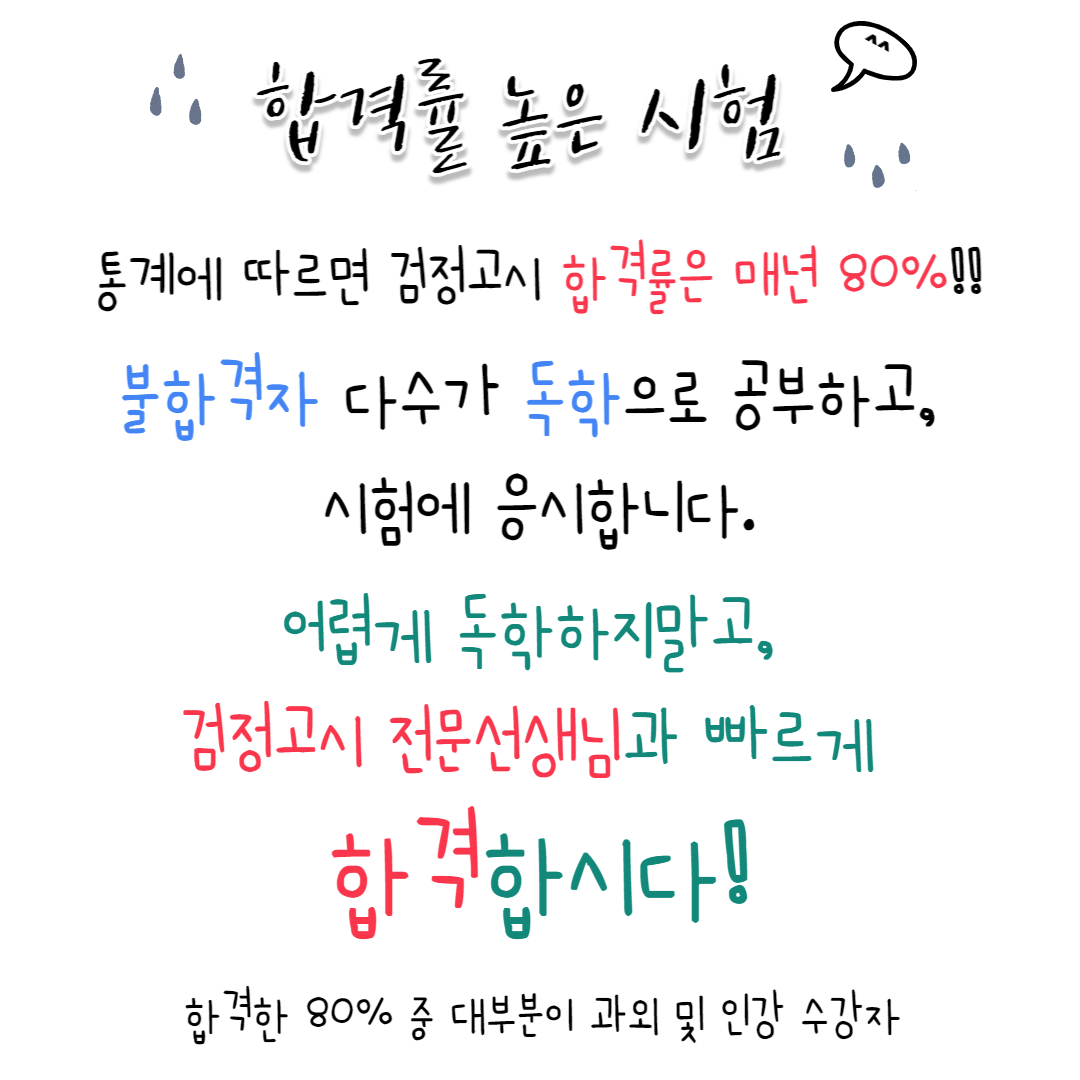 ^^
합격률 높은 시험
통계에 따르면 검정고시 합격률은 매년 80%!!
불합격자 다수가 독학으로 공부하고,
시험에 응시합니다.
어렵게 독학하지말고,
검정고시 전문선생님과 빠르게
합격합시다!
합격한 80% 중 대부분이 과외 및 인강 수강자